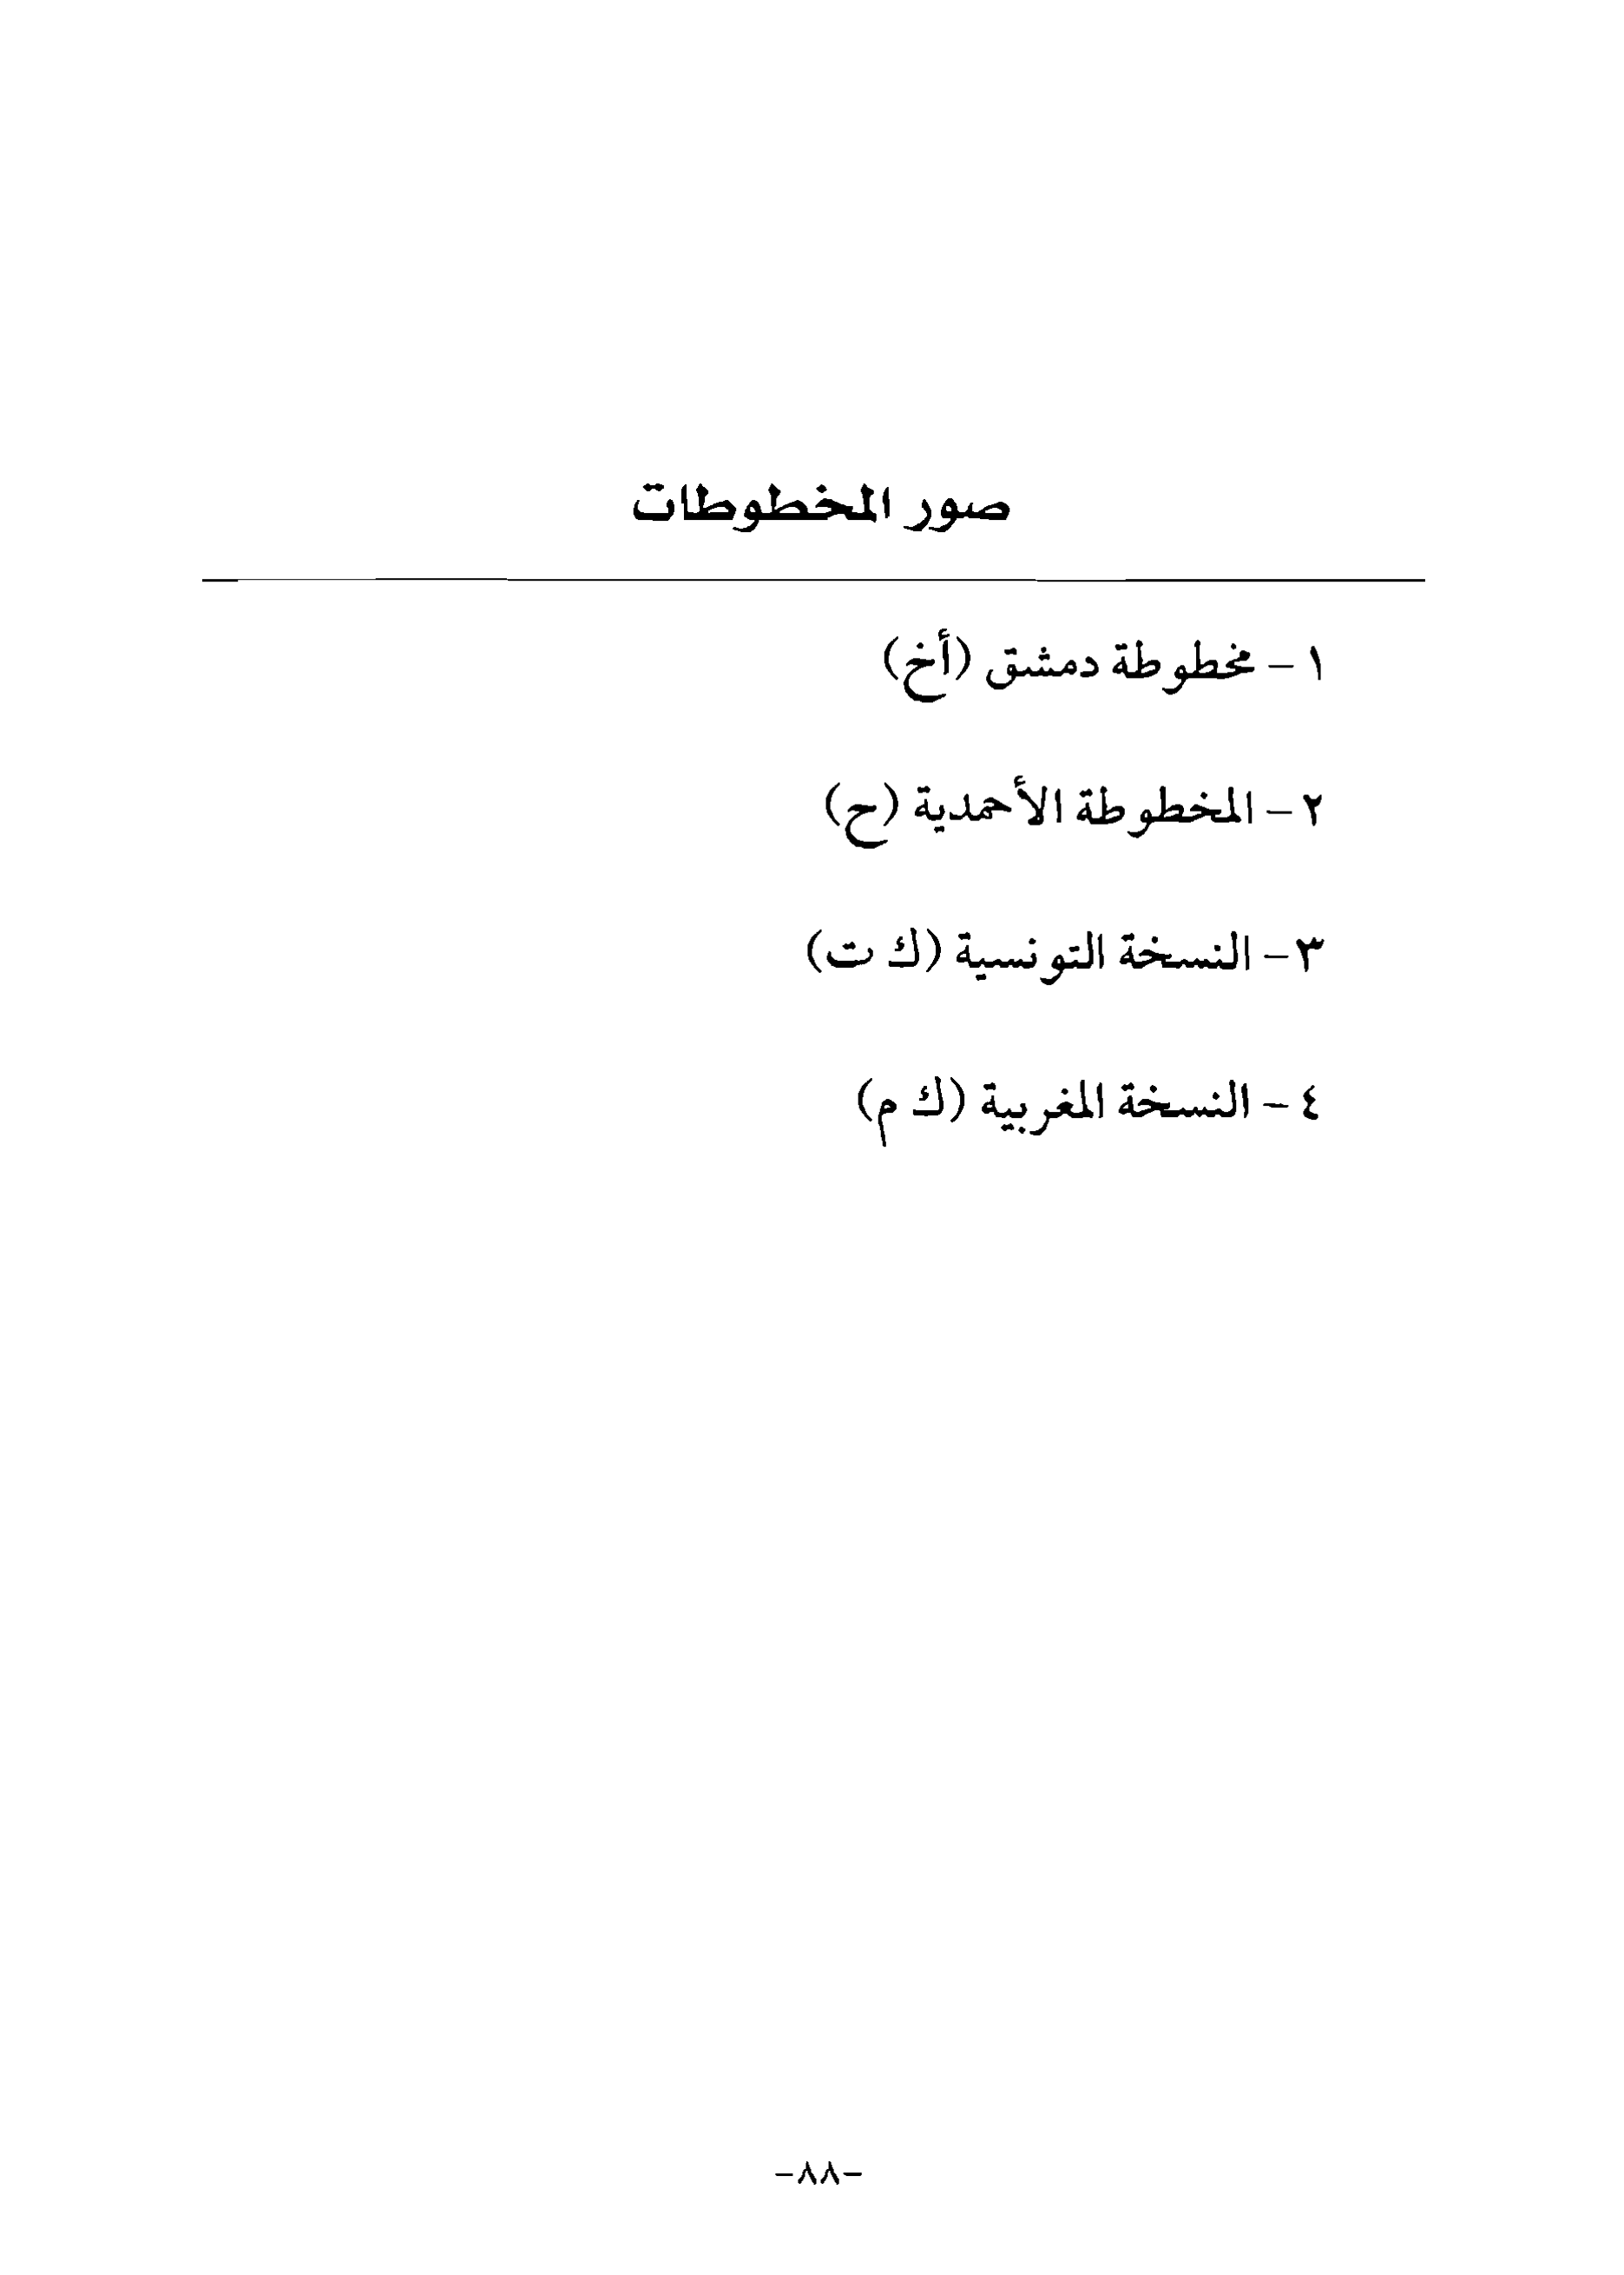 صور المخطوطات
١ - مخطوطة دمشق (أخ)
٢ - المخطوطة الأحمدية (ح)
٣ - النسخة التونسية (ك ت)
٤ - النسخة المغربية (ك م)
-٨٨-